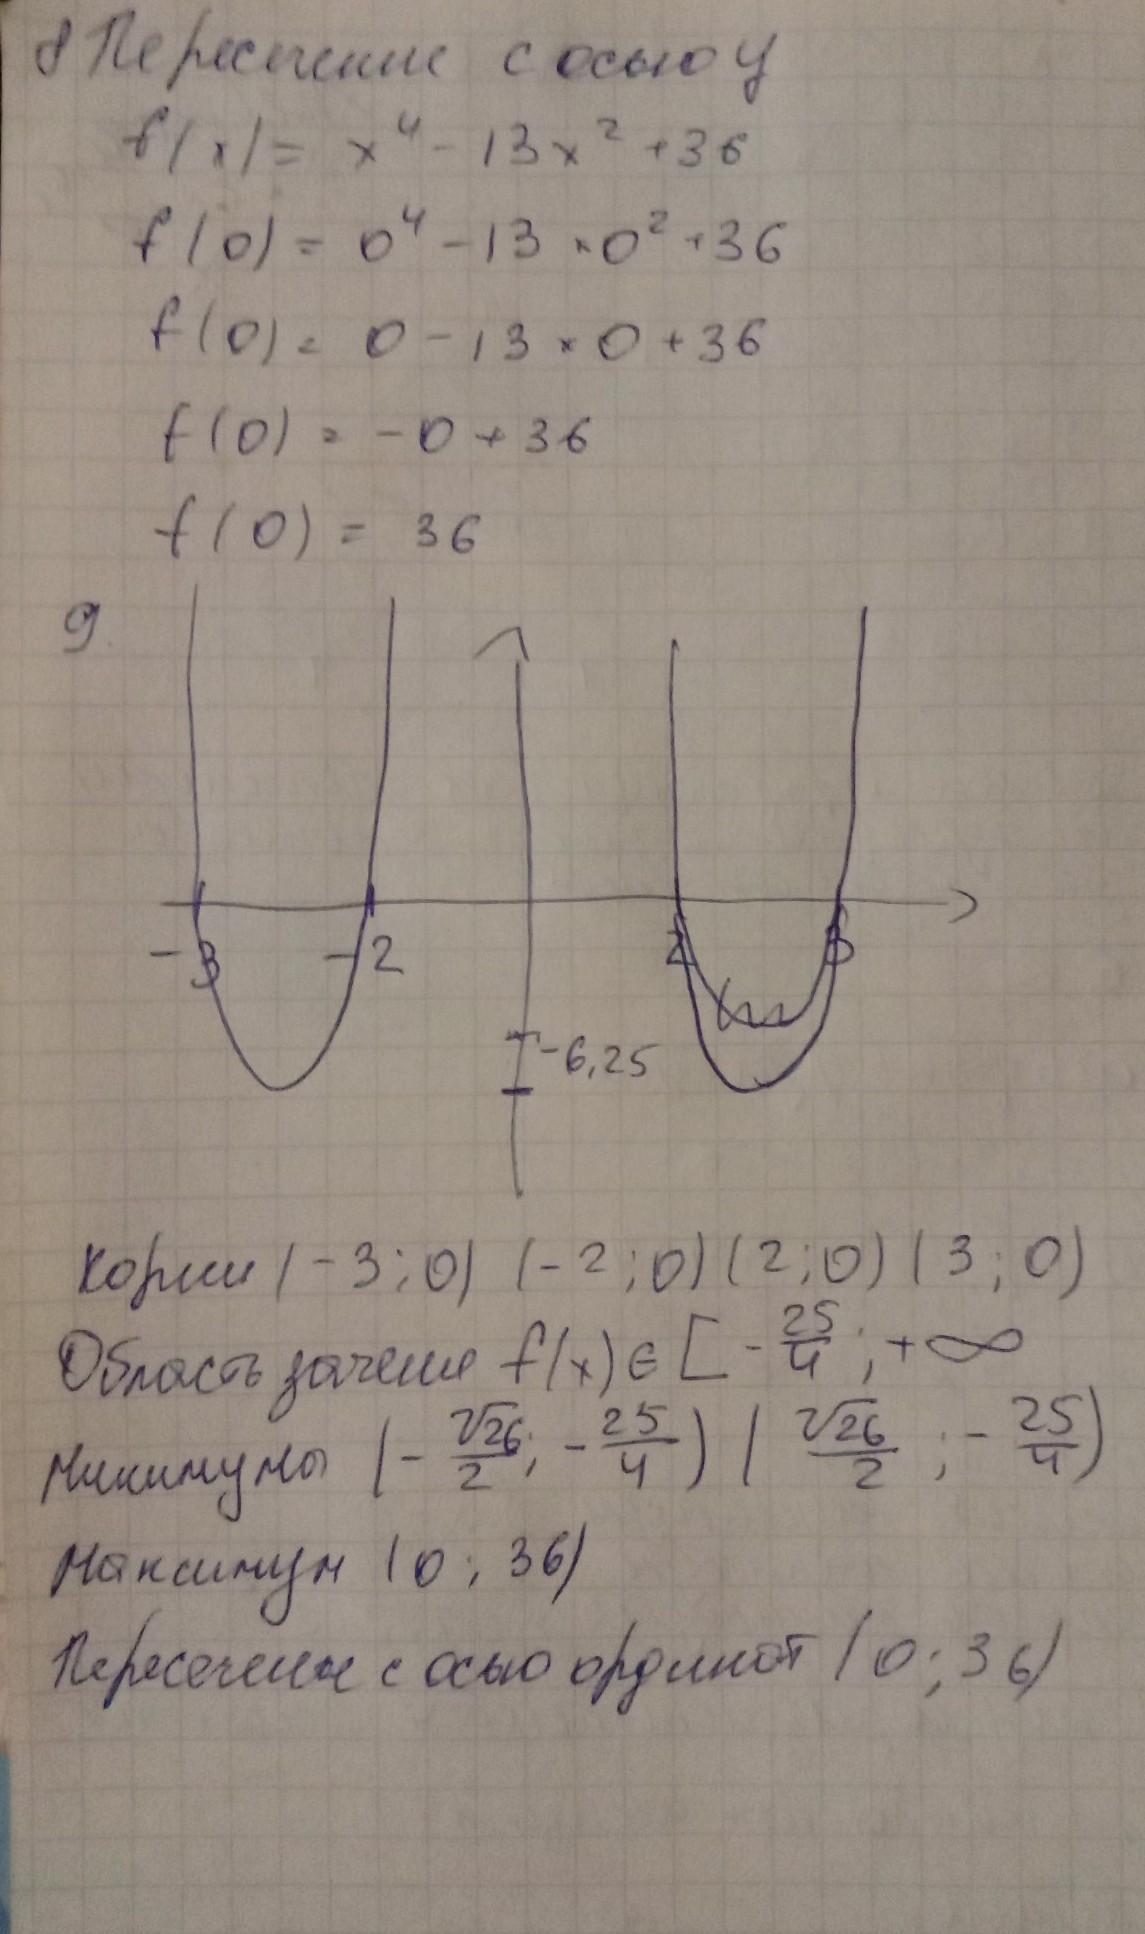 8 Пересечение с осью y
f(x) = x⁴ - 13x² + 36
f(0) = 0⁴ - 13 × 0² + 36
f(0) = 0 - 13 × 0 + 36
f(0) = -0 + 36
f(0) = 36
9.
-3 -2 2 3
-6,25
Корни (-3; 0) (-2; 0) (2; 0) (3; 0)
Область зачение f(x) ∈ [-25/4; +∞
Минимумы (-√26/2; -25/4) (√26/2; -25/4)
Максимум (0; 36)
Пересечение с осью ординат (0; 36)